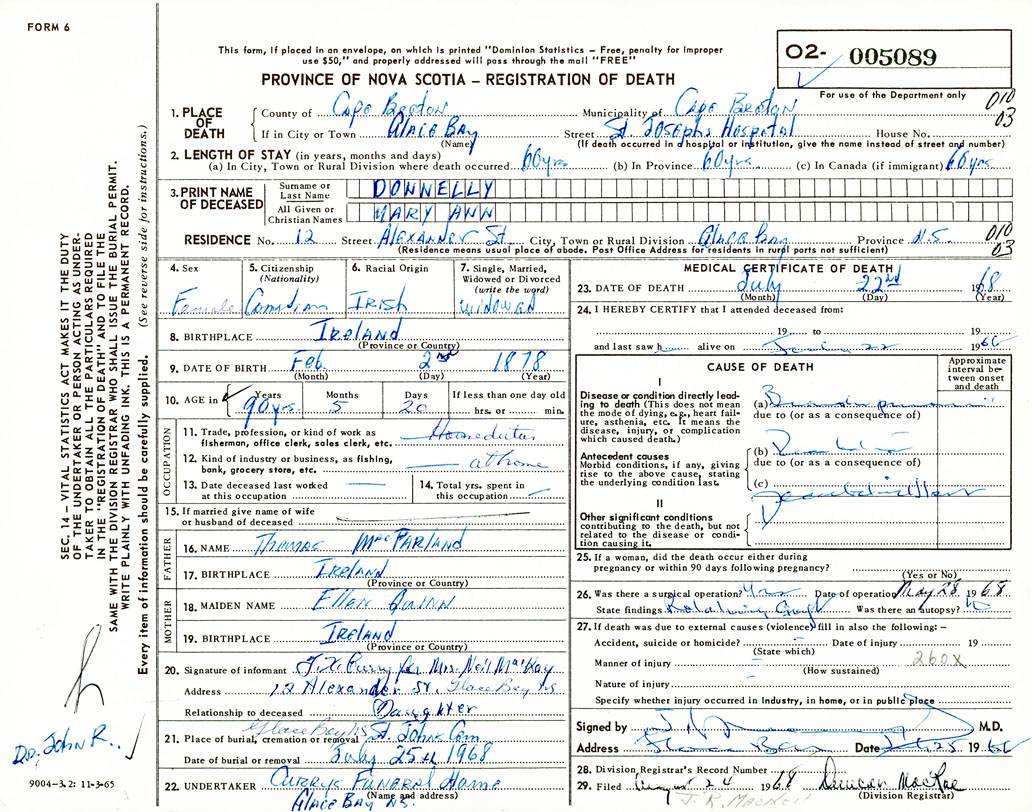 FORM 6
This form, if placed in an envelope, on which is printed "Dominion Statistics – Free, penalty for improper
use $50," and properly addressed will pass through the mail "FREE"
PROVINCE OF NOVA SCOTIA – REGISTRATION OF DEATH
O2- 005089
For use of the Department only
010
03
1. PLACE OF DEATH
County of Cape Breton Municipality of Cape Breton
If in City or Town Glace Bay Street St. Josephs Hospital House No.
(Name) (If death occurred in a hospital or institution, give the name instead of street and number)
2. LENGTH OF STAY (in years, months and days)
(a) In City, Town or Rural Division where death occurred 60yrs. (b) In Province 60yrs. (c) In Canada (if immigrant) 60yrs
3. PRINT NAME OF DECEASED
Surname or Last Name DONNELLY
All Given or Christian Names MARY ANN
RESIDENCE No. 12 Street Alexander St. City, Town or Rural Division Glace Bay Province N.S.
(Residence means usual place of abode. Post Office Address for residents in rural parts not sufficient)
010
03
4. Sex
Female
5. Citizenship
(Nationality)
Canadian
6. Racial Origin
Irish
7. Single, Married,
Widowed or Divorced
(write the word)
widowed
8. BIRTHPLACE Ireland
(Province or Country)
9. DATE OF BIRTH Feb. 2nd 1878
(Month) (Day) (Year)
10. AGE in
Years Months Days If less than one day old
90yrs. 5 20 hrs. or min.
OCCUPATION
11. Trade, profession, or kind of work as
fisherman, office clerk, sales clerk, etc. Homeduties
12. Kind of industry or business, as fishing,
bank, grocery store, etc. at home
13. Date deceased last worked
at this occupation
14. Total yrs. spent in
this occupation
15. If married give name of wife
or husband of deceased
FATHER
16. NAME Thomas MacParland
17. BIRTHPLACE Ireland
(Province or Country)
MOTHER
18. MAIDEN NAME Ellen Quinn
19. BIRTHPLACE Ireland
(Province or Country)
20. Signature of informant Curry for Mrs. Neil MacKay
Address 12 Alexander St. Glace Bay NS
Relationship to deceased Daughter
Glace Bay NS
21. Place of burial, cremation or removal St. Johns Cem.
Date of burial or removal July 25th 1968
22. UNDERTAKER Currys Funeral Home
(Name and address)
Glace Bay NS.
MEDICAL CERTIFICATE OF DEATH
23. DATE OF DEATH July 22nd 1968
(Month) (Day) (Year)
24. I HEREBY CERTIFY that I attended deceased from:
19 to 19
and last saw h alive on 22 1966
CAUSE OF DEATH
Approximate
interval be-
tween onset
and death
I
Disease or condition directly lead-
ing to death (This does not mean
the mode of dying, e.g., heart fail-
ure, asthenia, etc. It means the
disease, injury, or complication
which caused death.)
(a)
due to (or as a consequence of)
Antecedent causes
Morbid conditions, if any, giving
rise to the above cause, stating
the underlying condition last.
(b)
due to (or as a consequence of)
(c)
II
Other significant conditions
contributing to the death, but not
related to the disease or condi-
tion causing it.
25. If a woman, did the death occur either during
pregnancy or within 90 days following pregnancy?
(Yes or No)
26. Was there a surgical operation? Yes Date of operation May 28 1968
State findings Was there an autopsy?
27. If death was due to external causes (violence) fill in also the following: –
Accident, suicide or homicide? Date of injury 19
(State which)
Manner of injury 260X
(How sustained)
Nature of injury
Specify whether injury occurred in Industry, in home, or in public place
Signed by M.D.
Address Glace Bay Date 25 1966
28. Division Registrar's Record Number
29. Filed August 24 1968 Duncan MacRae
(Division Registrar)
J. R. MacNeil
SEC. 14 – VITAL STATISTICS ACT MAKES IT THE DUTY
OF THE UNDERTAKER OR PERSON ACTING AS UNDER-
TAKER TO OBTAIN ALL THE PARTICULARS REQUIRED
IN THE "REGISTRATION OF DEATH" AND TO FILE THE
SAME WITH THE DIVISION REGISTRAR WHO SHALL ISSUE THE BURIAL PERMIT.
WRITE PLAINLY WITH UNFADING INK. THIS IS A PERMANENT RECORD.
Every item of information should be carefully supplied. (See reverse side for instructions.)
Dr. John R.
9004–3.2: 11-3-65